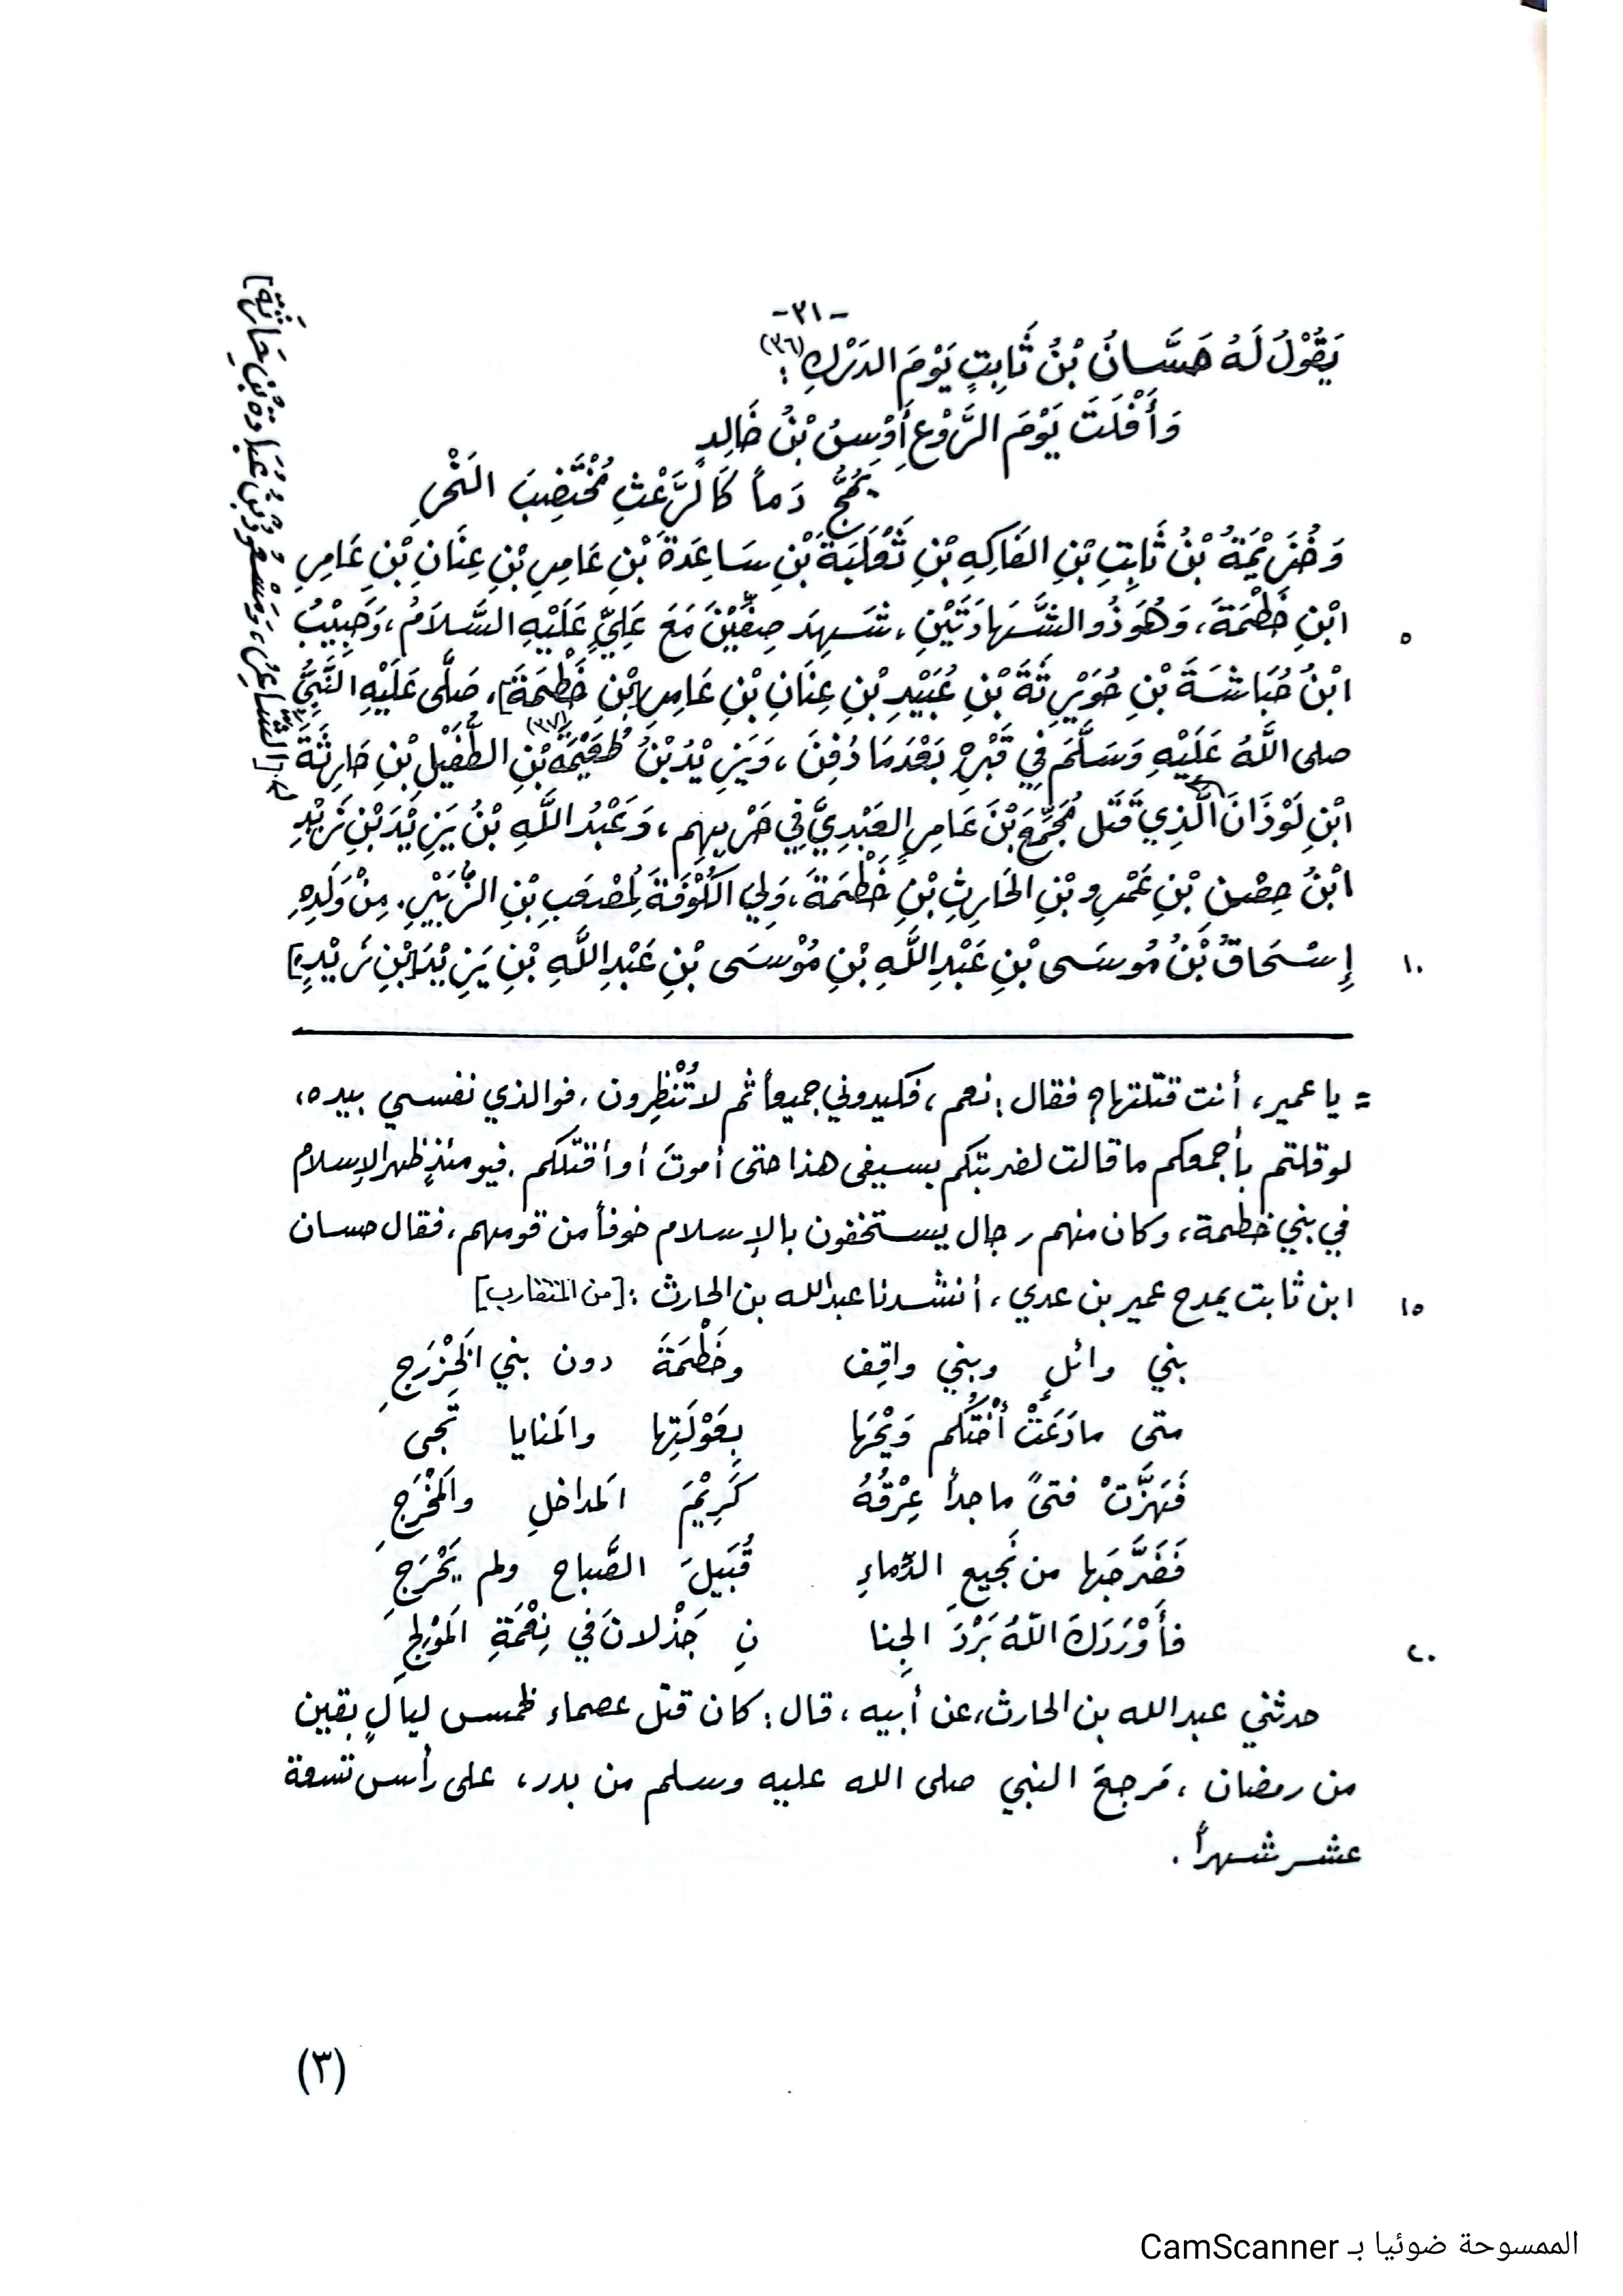 -٣١-
يَقُوْلُ لَهُ حَسَّانُ بْنُ ثَابِتٍ يَوْمَ الدَرْكِ (٣٦):
وَأَفْلَتَ يَوْمَ الرَّوْعِ أَوْسُ بْنُ خَالِدٍ
يَمُجُّ دَماً كَالرَّعْثِ مُخْتَضِبَ النَحْرِ
وَخُزَيْمَةُ بْنُ ثَابِتِ بْنِ الفَاكِهِ بْنِ ثَعْلَبَةَ بْنِ سَاعِدَةَ بْنِ عَامِرِ بْنِ عِنَانِ بْنِ عَامِرِ
٥ ابْنِ خَطْمَةَ، وَهُوَ ذُو الشَّهَادَتَيْنِ، شَهِدَ صِفِّيْنَ مَعَ عَلِيٍّ عَلَيْهِ السَّلَامُ، وَحَبِيْبُ
ابْنُ حُبَاشَةَ بْنِ حُوَيْرِثَةَ بْنِ عُبَيْدِ بْنِ عِنَانِ بْنِ عَامِرِ [بْنِ خَطْمَةَ]، صَلَّى عَلَيْهِ النَّبِيُّ
صلى اللَّهُ عَلَيْهِ وَسَلَّمَ فِي قَبْرِهِ بَعْدَمَا دُفِنَ، وَيَزِيْدُ بْنُ طُعَيْمَةَ (٣٧) بْنِ الطُّفَيْلِ بْنِ حَارِثَةَ
ابْنِ لَوْذَانَ الَّذِي قَتَلَ مُجَمِّعَ بْنَ عَامِرٍ العَبْدِيَّ فِي حَرْبِهِم، وَعَبْدُ اللَّهِ بْنُ يَزِيْدَ بْنِ زَيْدِ
ابْنُ حِصْنِ بْنِ عَمْرِو بْنِ الحَارِثِ بْنِ خَطْمَةَ، وَلِيَ الكُوْفَةَ لِمُصْعَبِ بْنِ الزُّبَيْرِ. مِنْ وَلَدِهِ
١٠ إِسْحَاقُ بْنُ مُوسَى بْنِ عَبْدِ اللَّهِ بْنِ مُوْسَى بْنِ عَبْدِ اللَّهِ بْنِ يَزِيْدَ [بْنِ زَيْدِ]
[الشَّاعِرُ، وَمَسْعُوْدُ بْنُ عُبَادَةَ بْنِ حَارِثَةَ]
= يا عمير، أنت قتلتها؟ فقال: نعم، فكيدوني جميعاً ثم لا تُنْظِرون. فوالذي نفسي بيده،
لو قلتم بأجمعكم ما قالت لضربتكم بسيفي هذا حتى أموتَ أو أقتلكم. فيومئذٍ ظهر الإسلام
في بني خطمة، وكان منهم رجال يستخفون بالإسلام خوفاً من قومهم، فقال حسان
١٥ ابن ثابت يمدح عمير بن عدي، أنشدنا عبدالله بن الحارث: [من المتقارب]
بني وائلٍ وبني واقِف وخَطْمَةَ دون بني الخَزْرَجِ
متى ما دَعَتْ أُخْتُكم وَيْحَها بِعَوْلَتِها والمَنايا تَجى
فَهَزَّتْ فتىً ماجداً عِرْقُهُ كَرِيْمَ المَداخلِ والمَخْرَجِ
فَضَرَّجَها من نَجيعِ الدِّماءِ قُبَيلَ الصَّباحِ ولم يَحْرَجِ
٢٠ فأَوْرَدَكَ اللّهُ بَرْدَ الجِنا نِ جَذْلانَ في نِعْمَةِ المَوْلِجِ
حدثني عبدالله بن الحارث، عن أبيه، قال: كان قتل عصماء لخمس ليالٍ بقين
من رمضان، مَرجِعَ النبي صلى الله عليه وسلم من بدر، على رأس تسعة
عشر شهراً.
(٣)
الممسوحة ضوئيا بـ CamScanner